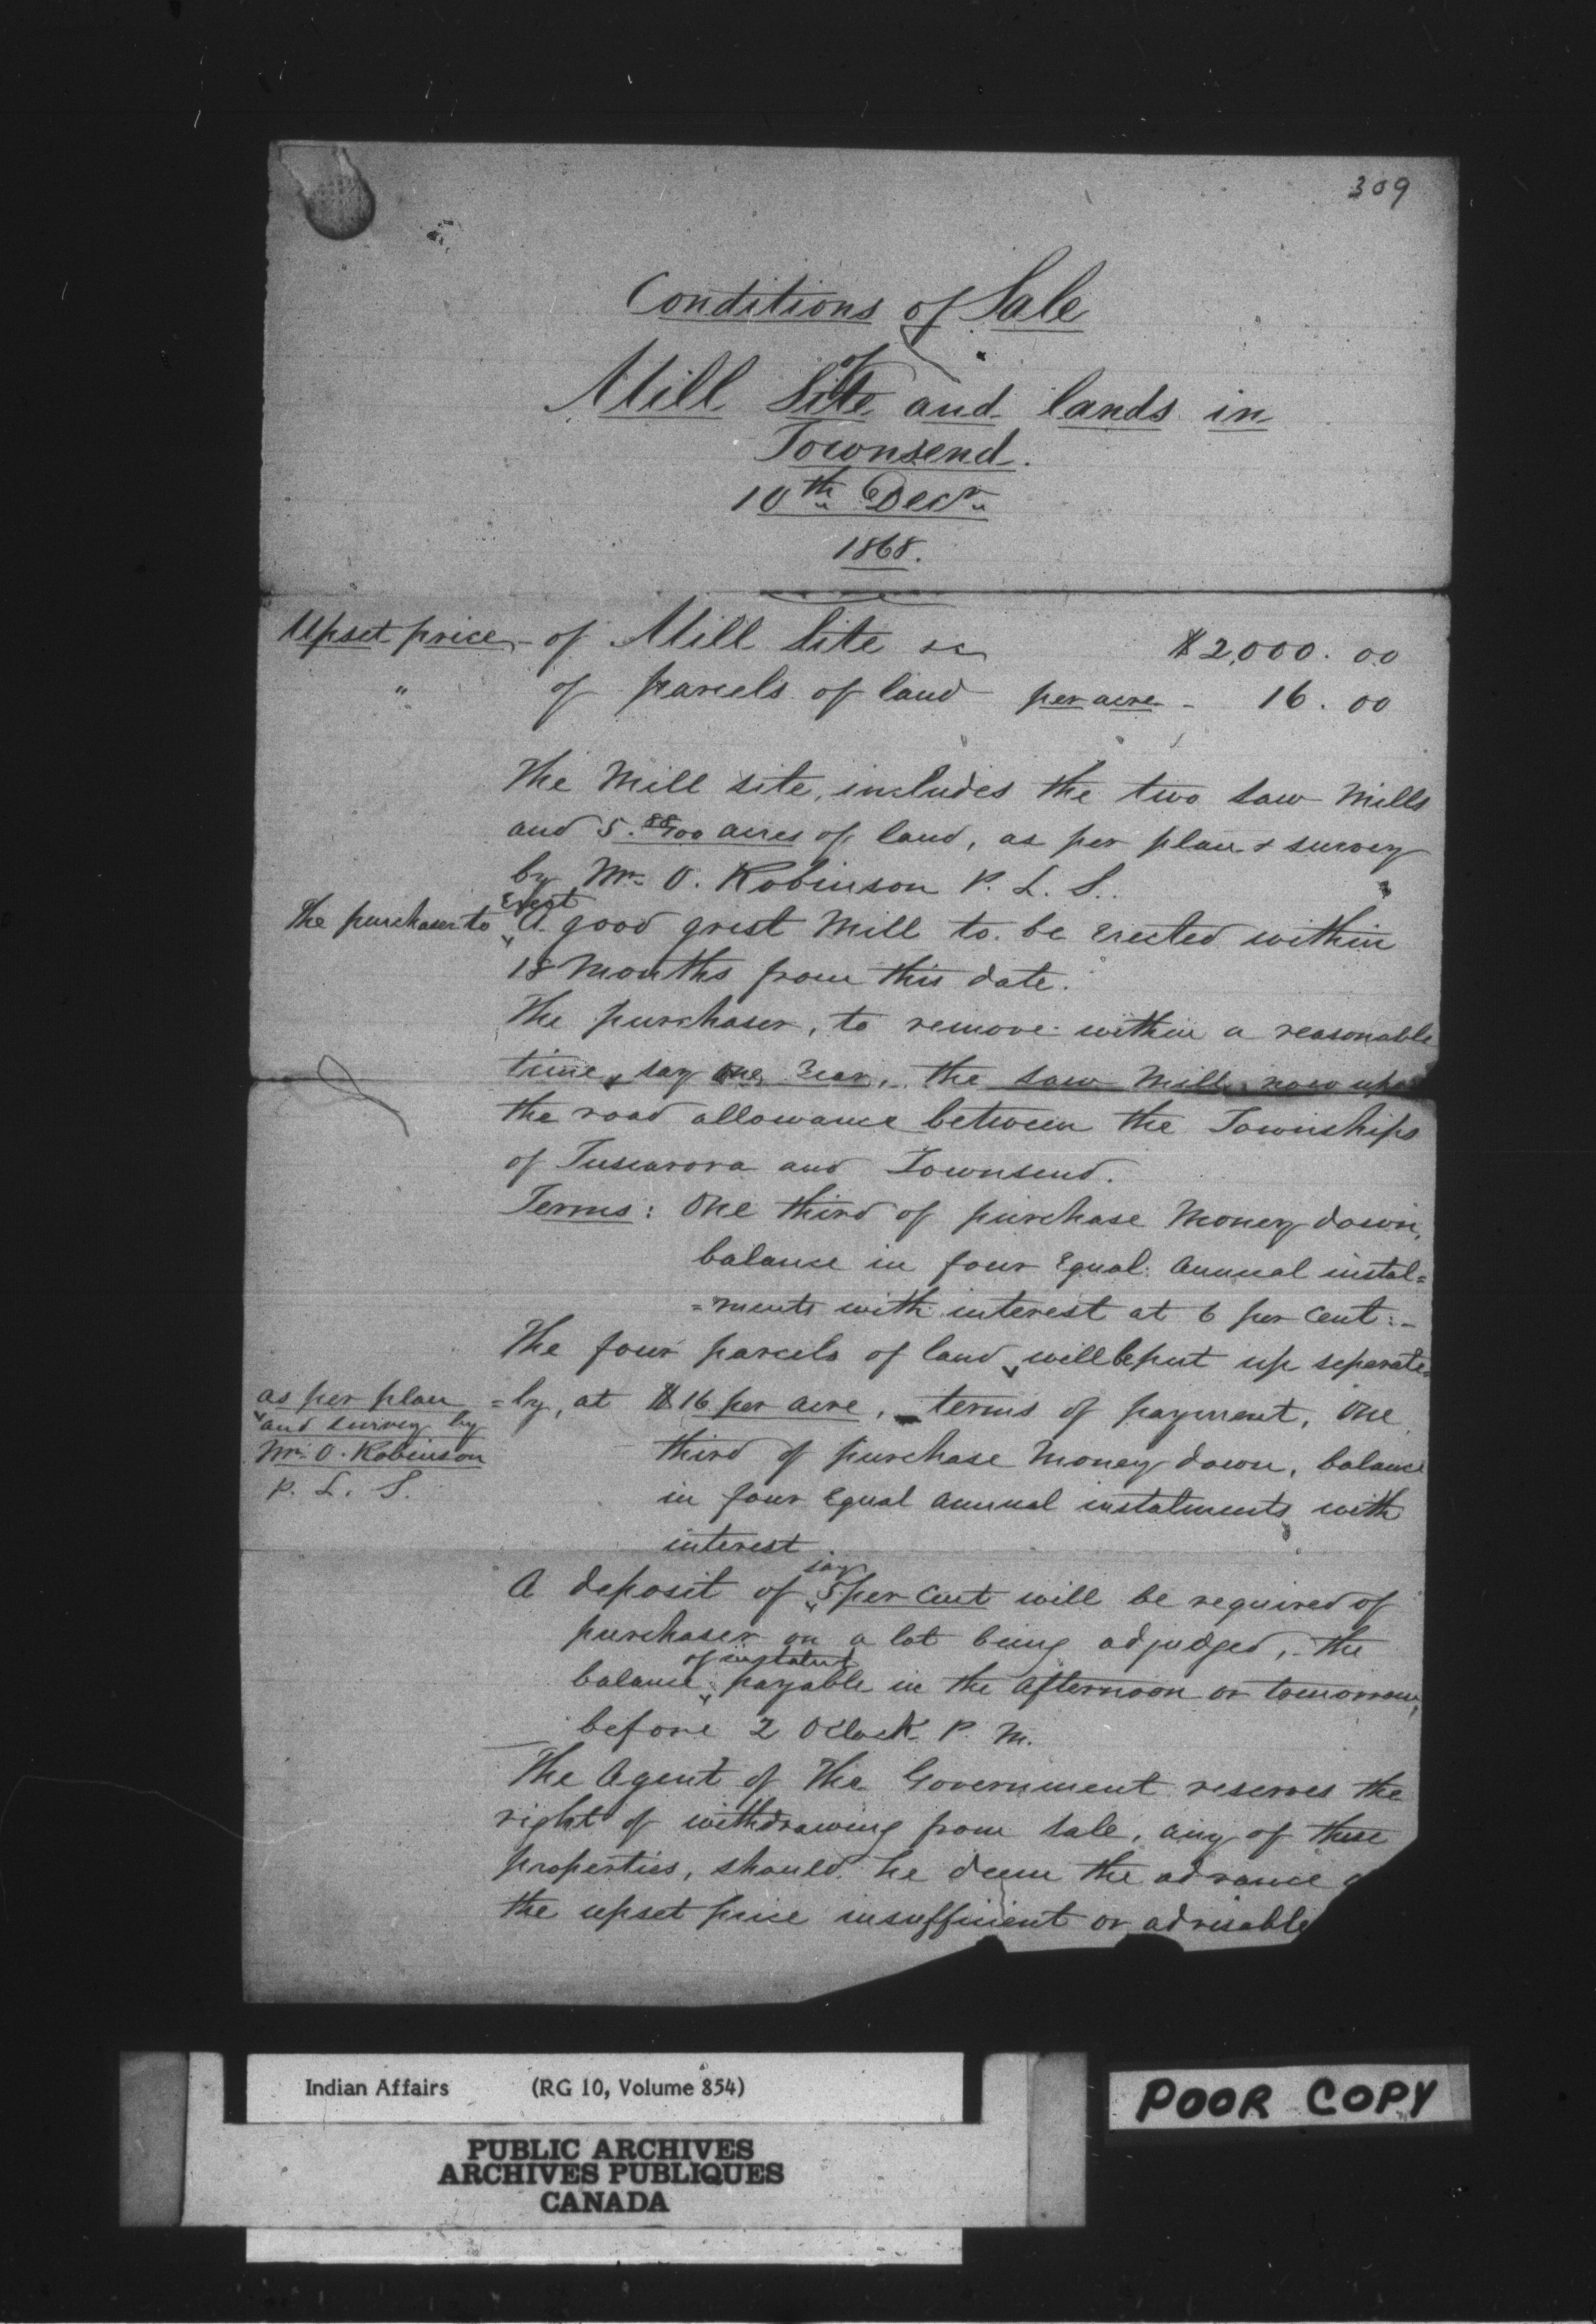 309
Conditions of Sale
of
Mill Site and lands in
Townsend.
10th Decr
1868.
Upset price - of Mill Site &c $2,000.00
" of parcels of land per acre - 16.00
The Mill site, includes the two saw Mills
and 5.88/100 acres of land, as per plan & survey
by Mr O. Robinson P. L. S.
Erect
The purchaser to A good grist Mill to be Erected within
18 Months from this date.
The purchaser, to remove within a reasonable
time, say one Year, the saw Mill, now upon
the road allowance between the Townships
of Tuscarora and Townsend.
Terms: One third of purchase Money down,
balance in four Equal Annual instal=
=ments with interest at 6 per cent:-
The four parcels of land, will be put up seperate
as per plan =ly, at $16 per acre, terms of payment, One
and survey by
Mr O. Robinson third of purchase Money down, balance
P. L. S. in four Equal Annual instalments with
interest
say
A deposit of 5 per cent will be required of
purchaser on a lot being adjudged, the
of instalmt
balance payable in the afternoon or tomorrow,
before 2 O'Clock P. M.
The Agent of The Government reserves the
right of withdrawing from sale, any of these
properties, should he deem the advance
the upset price insufficient or advisable
Indian Affairs (RG 10, Volume 854)
PUBLIC ARCHIVES
ARCHIVES PUBLIQUES
CANADA
POOR COPY